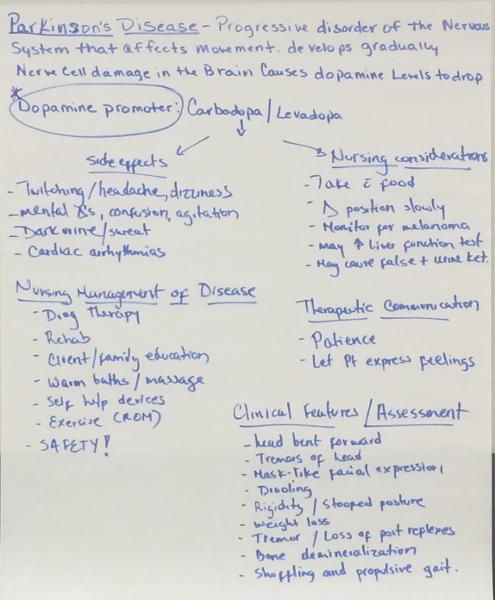 Parkinson's Disease - Progressive disorder of the Nervous
System that affects movement. develops gradually
Nerve Cell damage in the Brain Causes dopamine Levels to drop
* Dopamine promoter: Carbadopa / Levadopa
Side effects
- Twitching / headache, dizziness
- mental Δs, confusion, agitation
- Dark urine / sweat
- Cardiac arrhythmias
Nursing considerations
- Take c̄ food
- Δ position slowly
- Monitor for melanoma
- may ↑ Liver function test
- May cause false + urine ket.
Nursing Management of Disease
- Drug Therapy
- Rehab
- Client / family education
- Warm baths / massage
- Self help devices
- Exercise (ROM)
- SAFETY!
Therapeutic Communication
- Patience
- Let Pt express feelings
Clinical Features / Assessment
- head bent forward
- Tremors of head
- Mask-like facial expression
- Drooling
- Rigidity / Stooped posture
- Weight loss
- Tremor / Loss of post reflexes
- Bone demineralization
- Shuffling and propulsive gait.